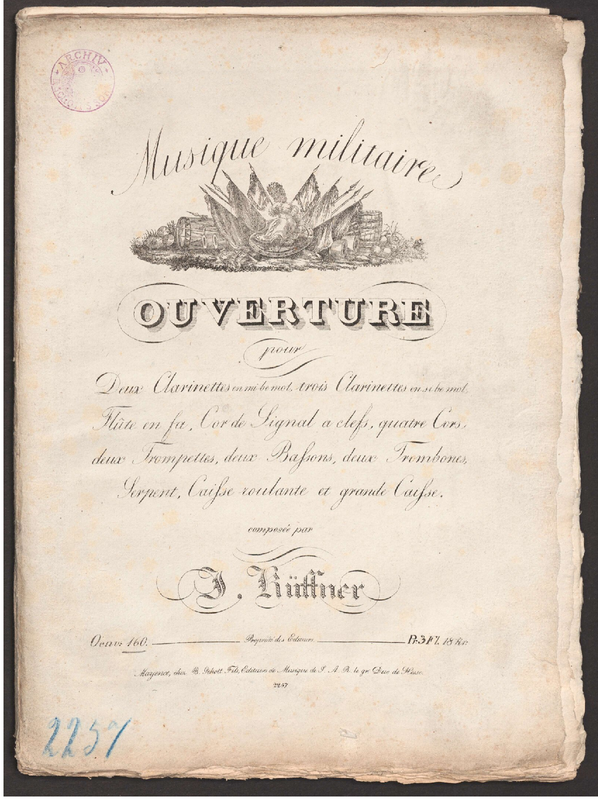 ARCHIV
Musique militaire
OUVERTURE
pour
Deux Clarinettes en mi be mol, trois Clarinettes en si be mol,
Flûte en fa, Cor de Signal a clefs, quatre Cors,
deux Trompettes, deux Bassons, deux Trombones,
Serpent, Caisse roulante et grande Caisse.
composée par
J. Küffner
Oeuvre 160. Propriété des Editeurs Pr. 3 Fl. 18 Kr.
Mayence, chez B. Schott Fils, Editeurs de Musique de S. A. R. le gr. Duc de Hesse.
2257
2257